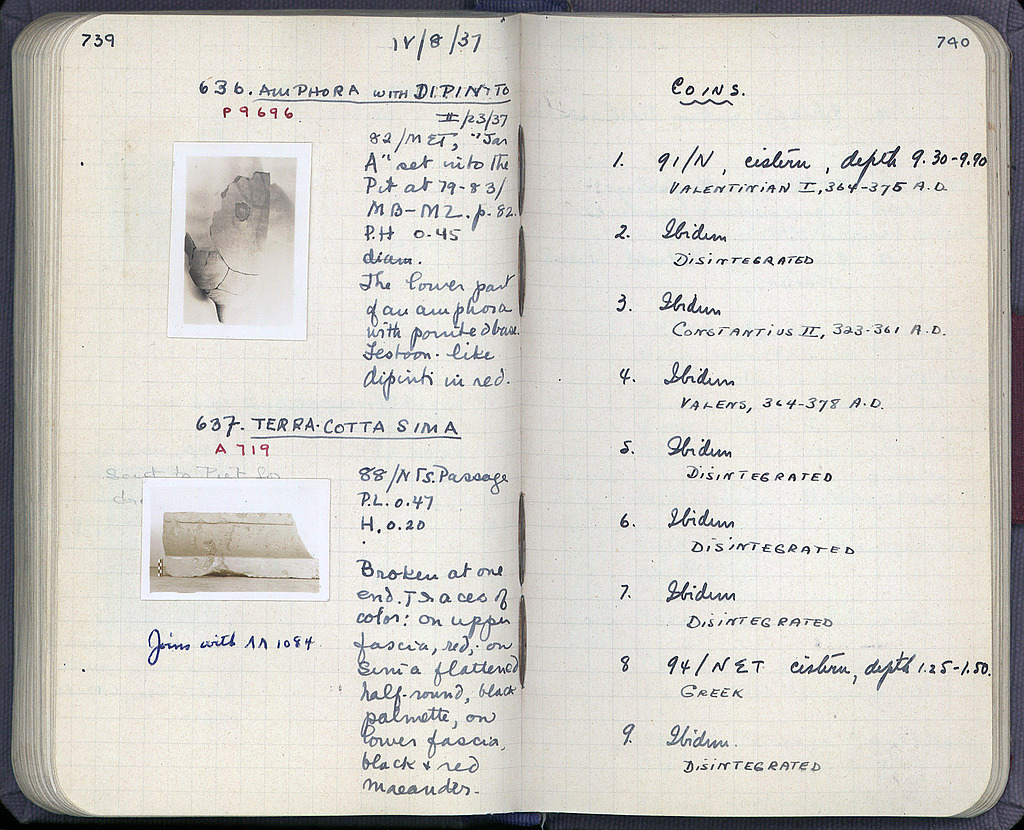 739
IV/8/37
636. AMPHORA WITH DIPINTO
P 9696
II/23/37
82/MET, "Jar
A" set into the
Pit at 79-83/
MB-MZ. p. 82.
P.H 0.45
diam.
The lower part
of an amphora
with pointed base.
Festoon-like
dipinti in red.
637. TERRA-COTTA SIMA
A 719
sent to Piet for
88/NTS. Passage
P.L. 0.47
H. 0.20
Broken at one
end. Traces of
color: on upper
fascia, red; on
sima flattened
half-round, black
palmette, on
lower fascia,
black & red
maeander.
Joins with AA 1084
740
COINS.
1. 91/N, cistern, depth 9.30-9.90
VALENTINIAN I, 364-375 A.D.
2. Ibidum
DISINTEGRATED
3. Ibidum
CONSTANTIUS II, 323-361 A.D.
4. Ibidum
VALENS, 364-378 A.D.
5. Ibidum
DISINTEGRATED
6. Ibidum
DISINTEGRATED
7. Ibidum
DISINTEGRATED
8 94/NET cistern, depth 1.25-1.50.
GREEK
9. Ibidum.
DISINTEGRATED